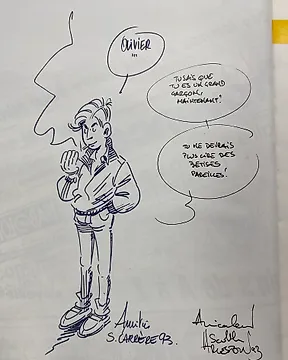 OLIVIER
...
TU SAIS QUE
TU ES UN GRAND
GARÇON,
MAINTENANT!
TU NE DEVRAIS
PLUS LIRE DES
BÊTISES
PAREILLES!
Amitiés
S. CARRÈRE 93.